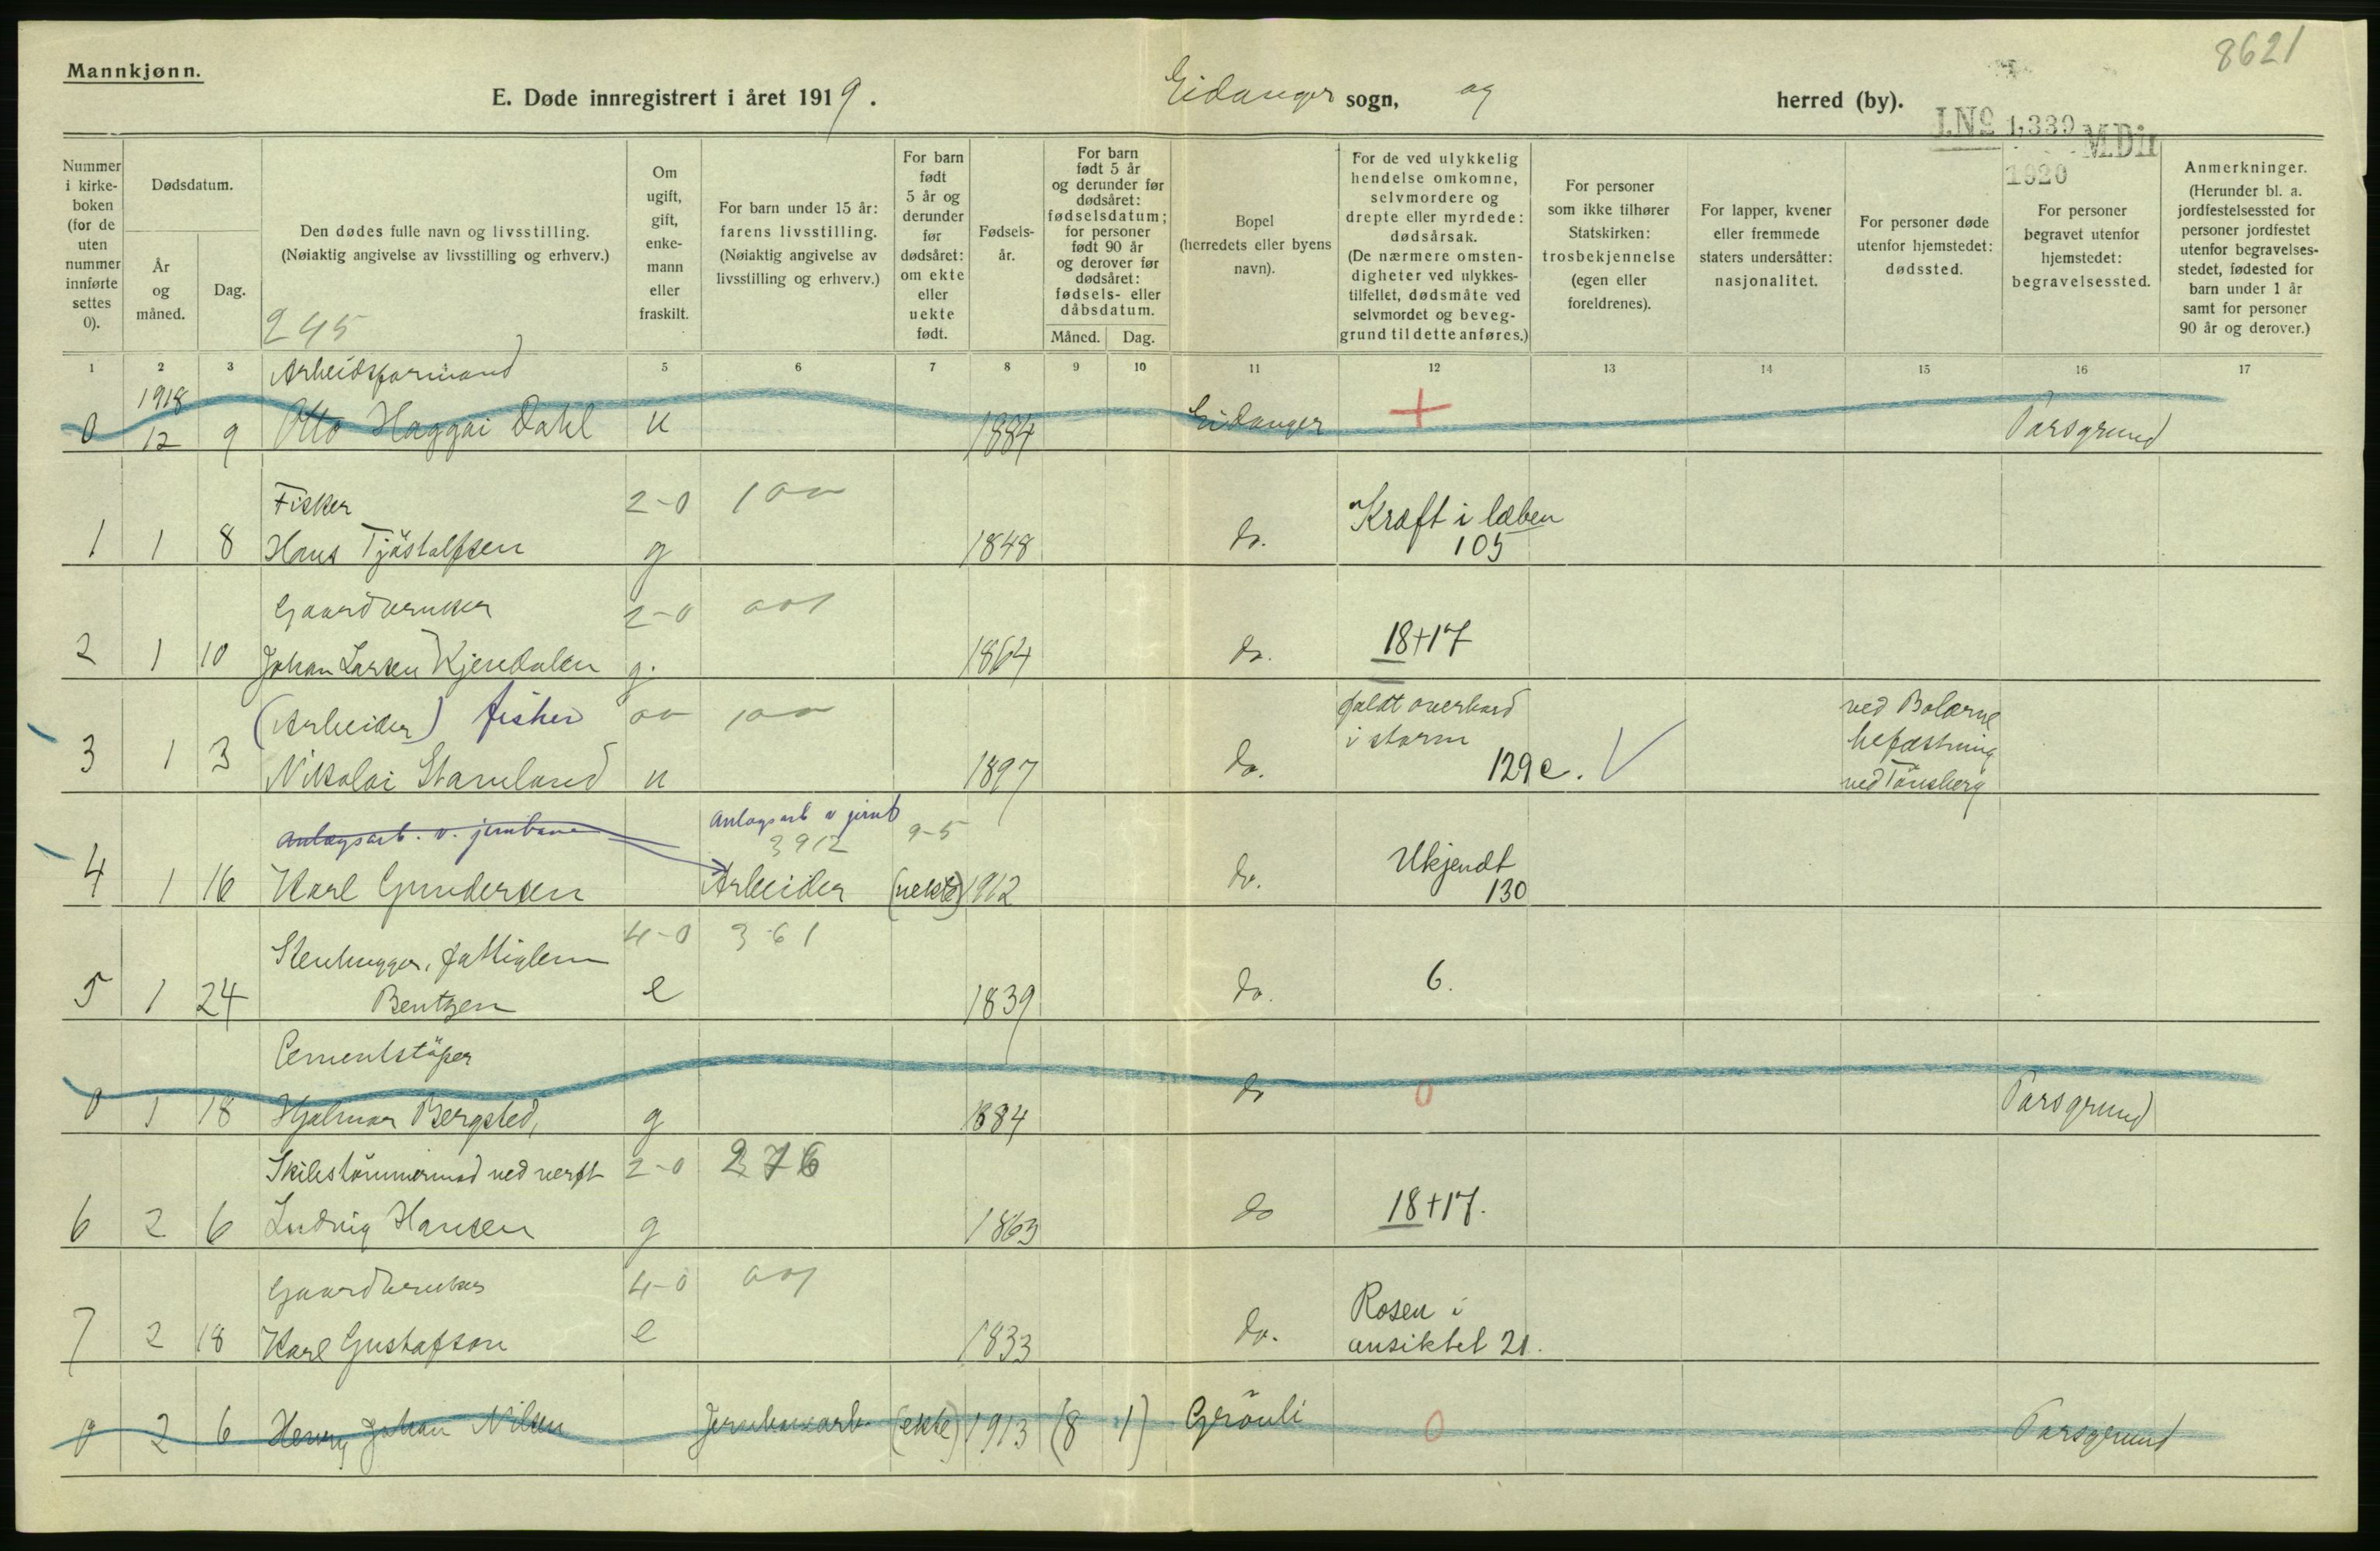 8621
Mannkjønn.
E. Døde innregistrert i året 1919. Eidanger sogn, og herred (by).
J.Nº 1,339 M.Dir
1920
Nummer i kirke-boken (for de uten nummer innførte settes 0).
Dødsdatum.
År og måned.
Dag.
Den dødes fulle navn og livsstilling.
(Nøiaktig angivelse av livsstilling og erhverv.)
245
Om ugift, gift, enke-mann eller fraskilt.
For barn under 15 år: farens livsstilling. (Nøiaktig angivelse av livsstilling og erhverv.)
For barn født 5 år og derunder før dødsåret: om ekte eller uekte født.
Fødsels-år.
For barn født 5 år og derunder før dødsåret: fødselsdatum; for personer født 90 år og derover før dødsåret: fødsels- eller dåbsdatum.
Måned. Dag.
Bopel (herredets eller byens navn).
For de ved ulykkelig hendelse omkomne, selvmordere og drepte eller myrdede: dødsårsak. (De nærmere omsten-digheter ved ulykkes-tilfellet, dødsmåte ved selvmordet og beveg-grund til dette anføres.)
For personer som ikke tilhører Statskirken: trosbekjennelse (egen eller foreldrenes).
For lapper, kvener eller fremmede staters undersåtter: nasjonalitet.
For personer døde utenfor hjemstedet: dødssted.
For personer begravet utenfor hjemstedet: begravelsessted.
Anmerkninger. (Herunder bl. a. jordfestelsessted for personer jordfestet utenfor begravelses-stedet, fødested for barn under 1 år samt for personer 90 år og derover.)
1 2 3 5 6 7 8 9 10 11 12 13 14 15 16 17
1918 Arbeidsformand
0 12 9 Otto Haggai Dahl u 1884 Eidanger + Porsgrund
Fisker 2-0 100 Kræft i læben
1 1 8 Hans Tjöstolfsen g 1848 do. 105
Gaardbruker 2-0 001
2 1 10 Johan Larsen Kjendalen g. 1864 do. 18+17
(Arbeider) fisker 00 100 faldt overbord ved Bolærne
i storm befæstning
3 1 3 Nikolai Stamland u 1897 do. 129e. V ved Tönsberg
Anlægsarb. v. jernbane Anlagsarb v jernb
3912 9-5
4 1 16 Karl Gundersen Arbeider (uekte) 1912 do. Ukjendt
130
Stenhugger, fattiglem 4-0 361
5 1 24 Bentzen e 1839 do. 6.
Cementstöper
0 1 18 Hjalmar Bergsted, g 1884 do 0 Porsgrund
Skibstömmermand ved verft 2-0 276
6 2 6 Ludvig Hansen g 1863 do 18+17.
Gaardbruker 4-0 001 Rosen i
7 2 18 Karl Gustafson e 1833 do. ansiktet 21.
0 2 6 Henry Johan Nilsen Jernbanearb. (ekte) 1913 (8 1) Grönli 0 Porsgrund